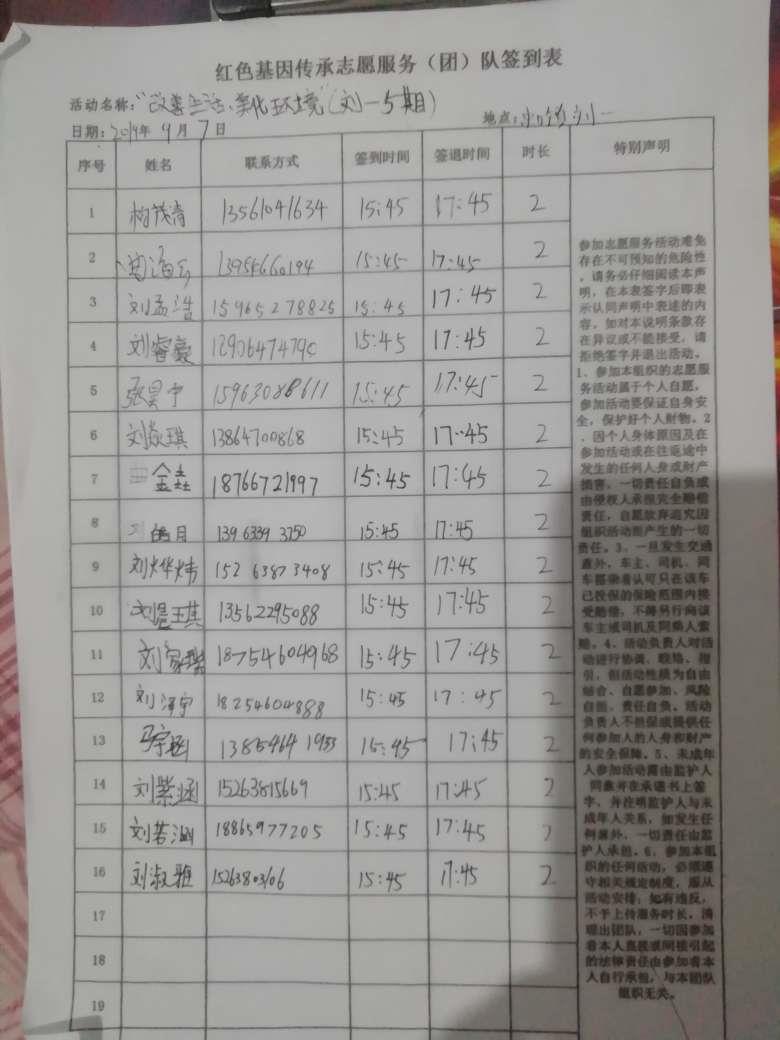 红色基因传承志愿服务（团）队签到表
活动名称："改善生活、美化环境"(刘一5期)
日期：2019年 9月 7日 地点：刘一
序号 姓名 联系方式 签到时间 签退时间 时长 特别声明
1 13561041634 15:45 17:45 2
2 15:45 17:45 2
3 刘孟浩 15965278825 15:45 17:45 2
4 刘睿豪 15:45 17:45 2
5 张昊宁 15:45 17:45 2
6 刘琪 13864700868 15:45 17:45 2
7 金垚 18766721997 15:45 17:45 2
8 刘皓月 139 6339 3750 15:45 17:45 2
9 刘烨炜 152 6387 3408 15:45 17:45 2
10 刘昱琪 13562295088 15:45 17:45 2
11 刘家瑞 18754604968 15:45 17:45 2
12 刘泽宇 18254604888 15:45 17:45 2
13 马宇涵 15:45 17:45 2
14 刘紫涵 15263815669 15:45 17:45 2
15 刘若涵 18865977205 15:45 17:45 2
16 刘淑雅 15263803106 15:45 17:45 2
17
18
19
参加志愿服务活动难免
存在不可预知的危险性
，请务必仔细阅读本声
明，在本表签字后即表
示认同声明中表述的内
容。如对本说明条款存
在异议或不能接受，请
拒绝签字并退出活动。
1、参加本组织的志愿服
务活动属于个人自愿，
参加活动要保证自身安
全，保护好个人财物。2
、因个人身体原因及在
参加活动或在往返途中
发生的任何人身或财产
损害，一切责任自负或
由侵权人承担完全赔偿
责任，自愿放弃追究因
组织活动而产生的一切
责任。3、一旦发生交通
意外，车主、司机、同
车搭乘者认可只在该车
已投保的保险范围内接
受赔偿，不得另行向该
车主或司机及同乘人索
赔。4、活动负责人对活
动进行协调、联络、指
引，但活动性质为自由
结合、自愿参加、风险
自担、责任自负。活动
负责人不担保或提供任
何参加人的人身和财产
的安全保障。5、未成年
人参加活动需由监护人
同意并在承诺书上签
字，并注明监护人与未
成年人关系，如发生任
何意外，一切责任由监
护人承担。6、参加本组
织的任何活动，必须遵
守相关规定制度，服从
活动安排；如有违反，
不予上传服务时长，清
理出团队，一切因参加
者本人直接或间接引起
的法律责任由参加者本
人自行承担，与本团队
组织无关。